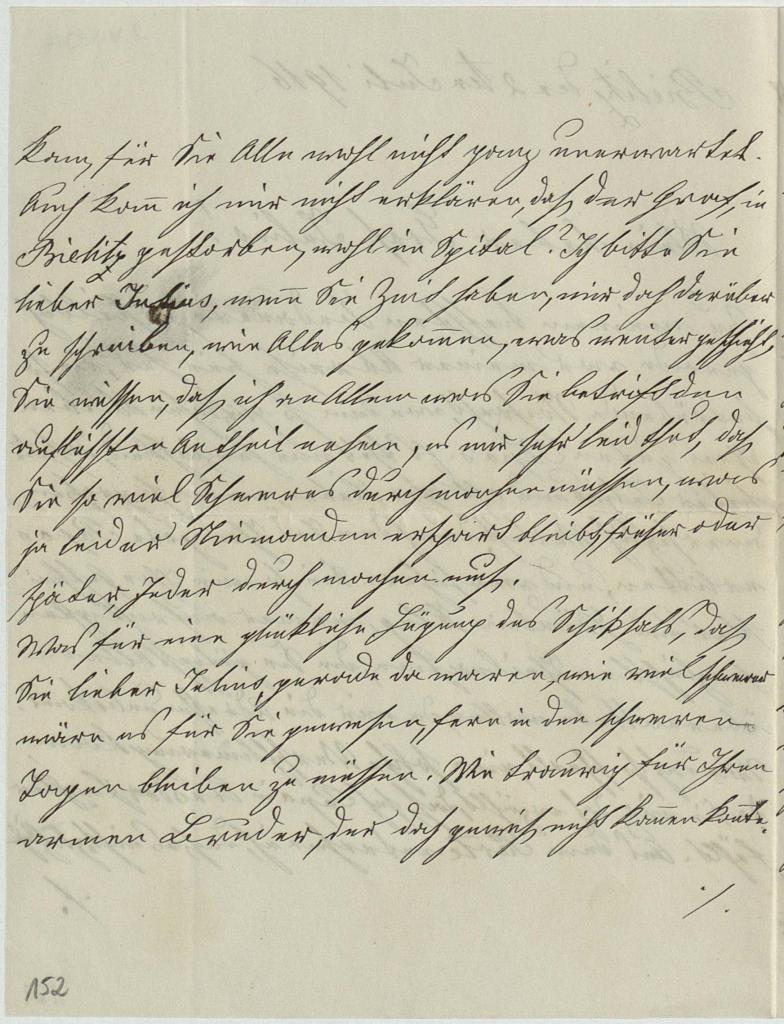 kam, für Sie Alle wohl nicht ganz unerwartet.
Auch kann ich mir nicht erklären, daß der Graf, in
Bielitz gestorben, wohl im Spital? Ich bitte Sie
lieber Julius, wenn Sie Zeit haben, mir doch darüber
zu schreiben, wie Alles gekommen, was weiter geschieht,
Sie wissen, daß ich an Allem was Sie betrifft den
aufrichtigsten Antheil nehme, es mir sehr leid thut, daß
Sie so viel Schweres durchmachen müssen, was
ja leider Niemanden erspart bleibt, früher oder
später, Jeder durch machen muß.
Was für eine glückliche Fügung des Schicksals, daß
Sie lieber Julius, gerade da waren, wie viel schwerer
wäre es für Sie gewesen, fern in den schweren
Tagen bleiben zu müssen. Wie traurig für Ihren
armen Bruder, der doch gewiß nicht kommen konnte.
./.
152